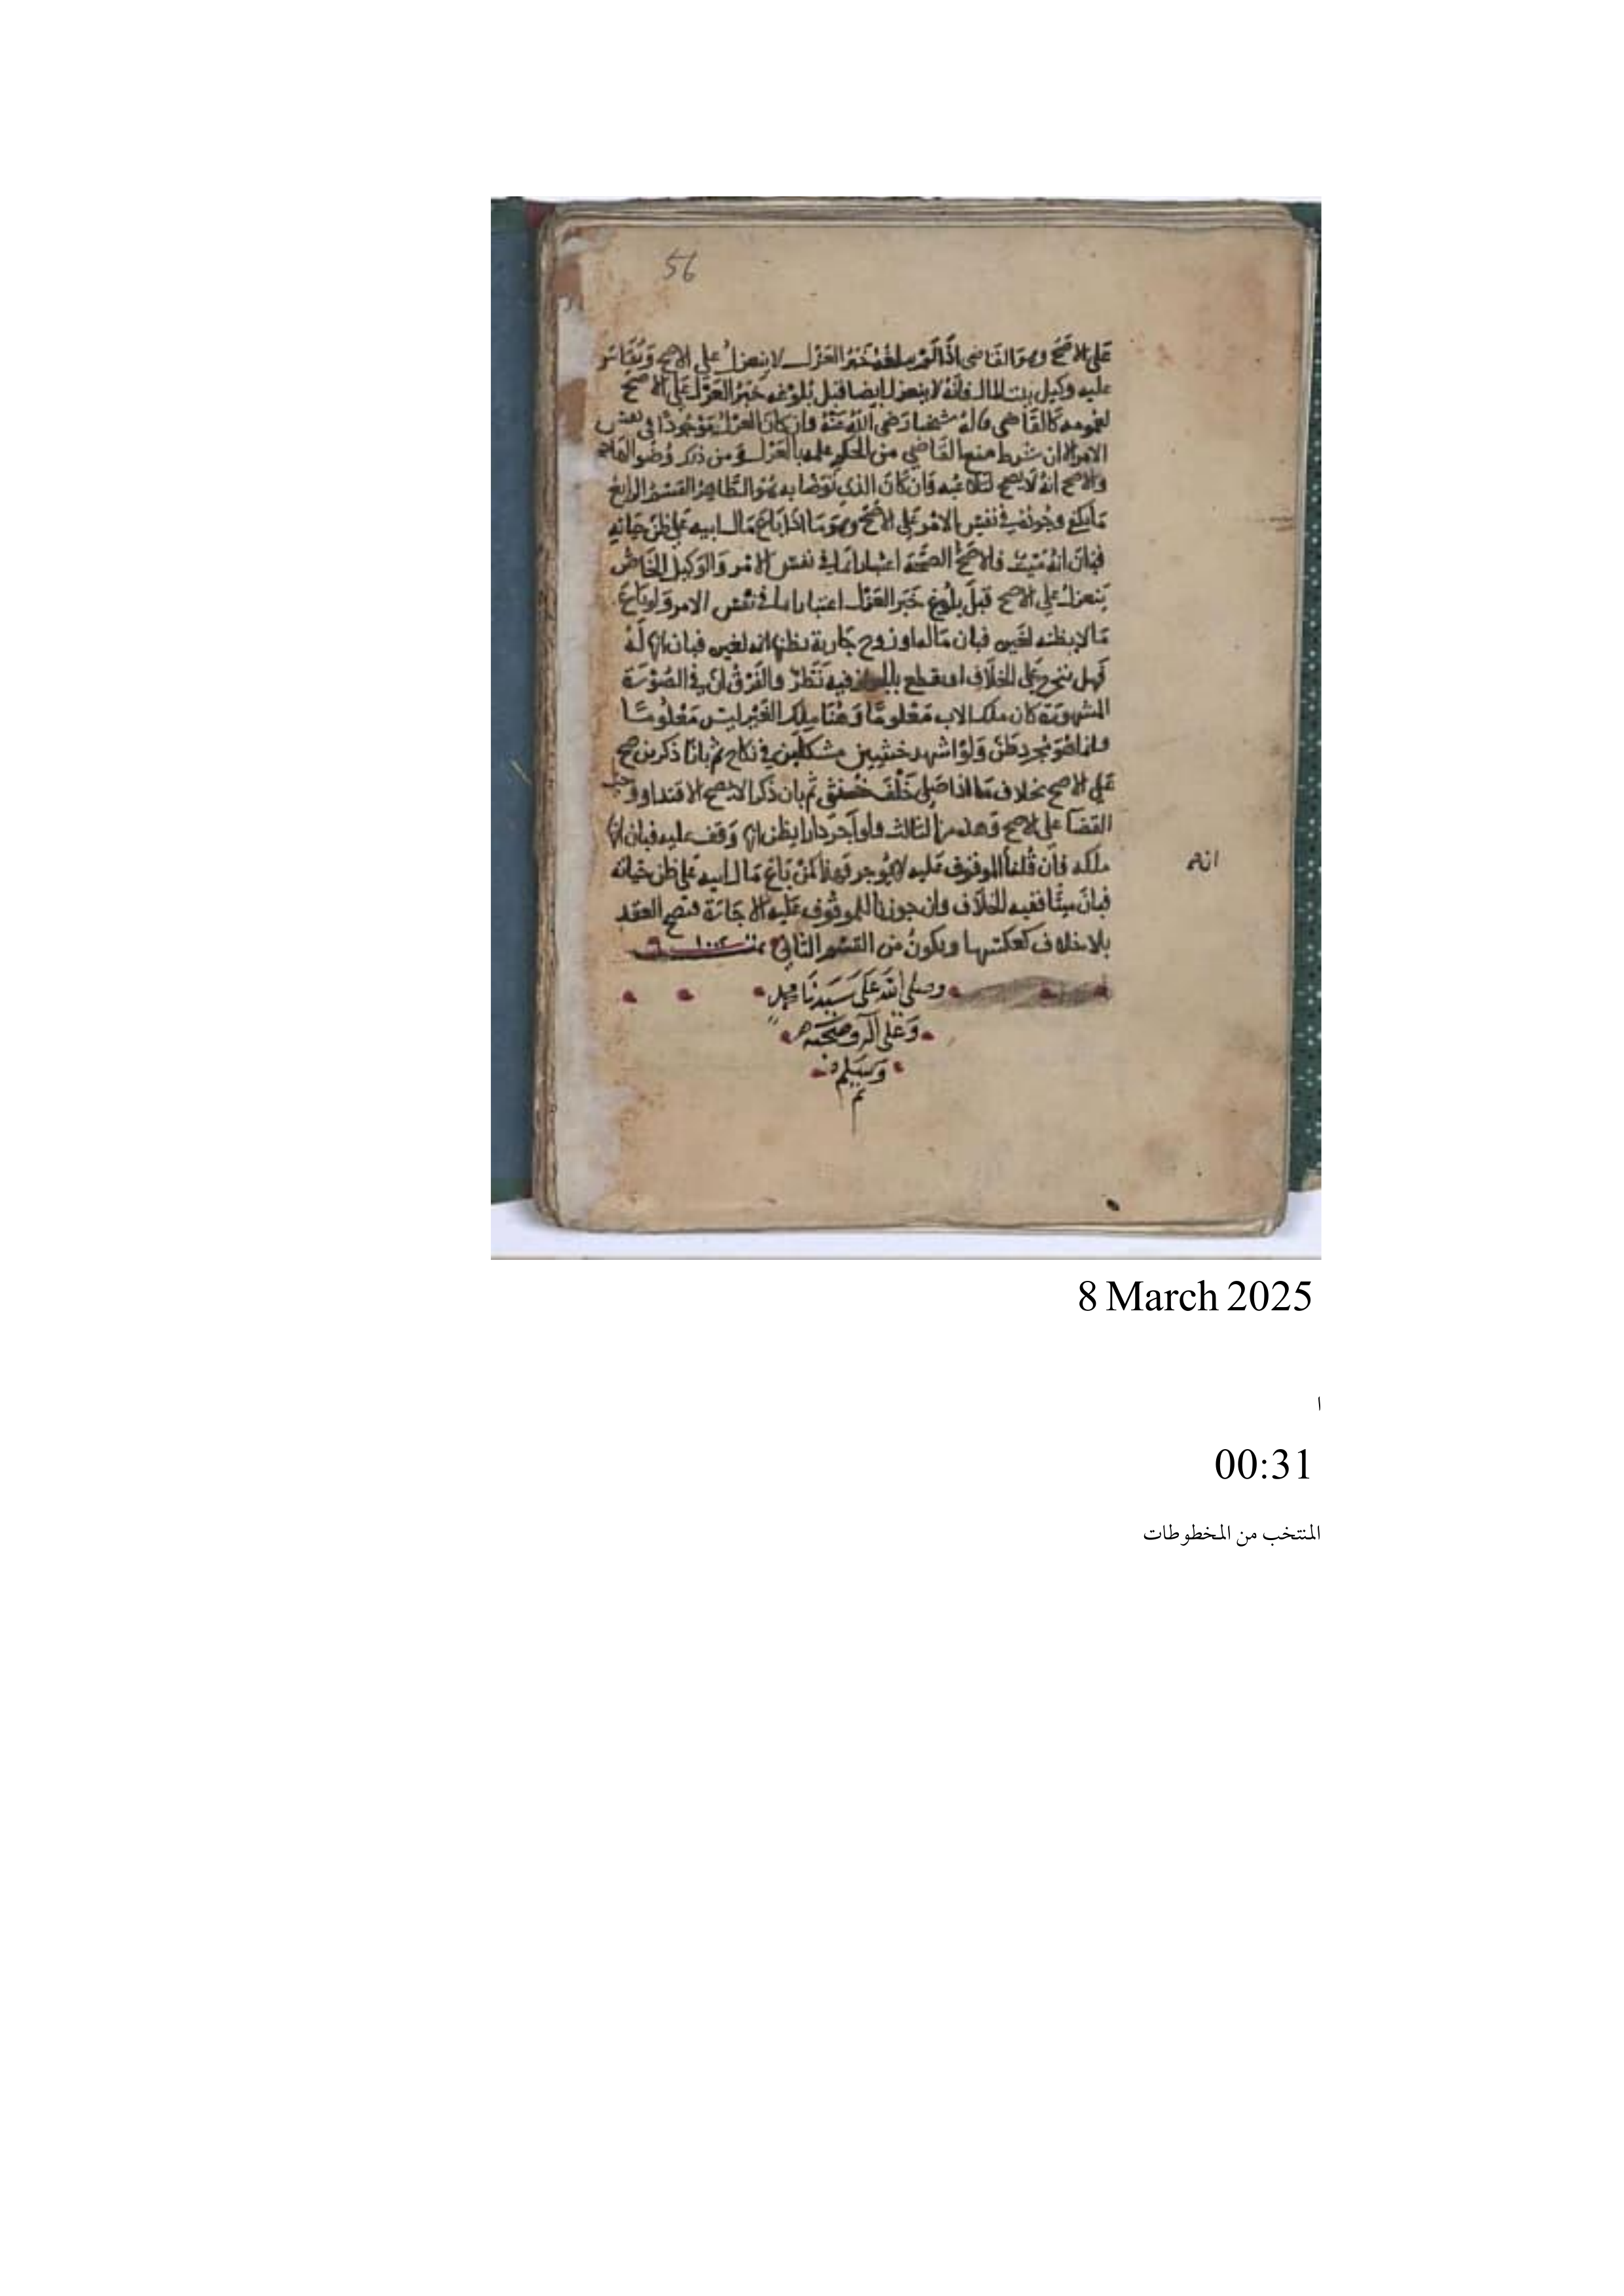 56
على الاصح وهو القاضى اذا لم يبلغه خبر العزل لا ينعزل على الاصح ويقاس
عليه وكيل بيت المال فانه لا ينعزل ايضا قبل بلوغه خبر العزل على الاصح
لعمومه كالقاضى قاله شيخنا رضى الله عنه وان كان العزل موجودا فى نفس
الامر الا ان شرط منع القاضي من الحكم علمه بالعزل ومن ذلك وضو
والاصح انه لا يصح وان كان الذي توضا به هو الطاهر القسم الرابع
ما يكفى وجوده فى نفس الامر على الاصح وهو ما اذا باع مال ابيه على ظن حياته
فبان انه ميت فالاصح الصحة اعتبارا بما في نفس الامر والوكيل الخاص
ينعزل على الاصح قبل بلوغ خبر العزل اعتبارا بما في نفس الامر ولو باع
مالا يظنه لغيره فبان ماله او زوج جارية يظن انها لغيره فبان انها له
فهل يتخرج على الخلاف او يقطع بالجواز فيه نظر والفرق ان في الصورة
المشهورة كان ملك الاب معلوما وهنا ملك الغير ليس معلوما
وانما هو مجرد ظن ولو اشهد خنثيين مشكلين في نكاح ثم بانا ذكرين صح
على الاصح بخلاف ما اذا صلى خلف خنثى ثم بان ذكرا لا يصح الاقتدا ووجب
القضا على الاصح وهذه من الثالث ولو آجر دارا يظن انها وقف عليه فبان انها
ملكه فان قلنا الموقوف عليه لا يوجر فهو كمن باع مال ابيه على ظن حياته
انه
فبان ميتا ففيه الخلاف وان جوزنا للموقوف عليه الاجارة فتصح العقد
بلا خلاف كعكسها ويكون من القسم الثانى
وصلى الله على سيدنا محمد
وعلى آله وصحبه
وسلم
تم
8 March 2025
ا
00:31
المنتخب من المخطوطات